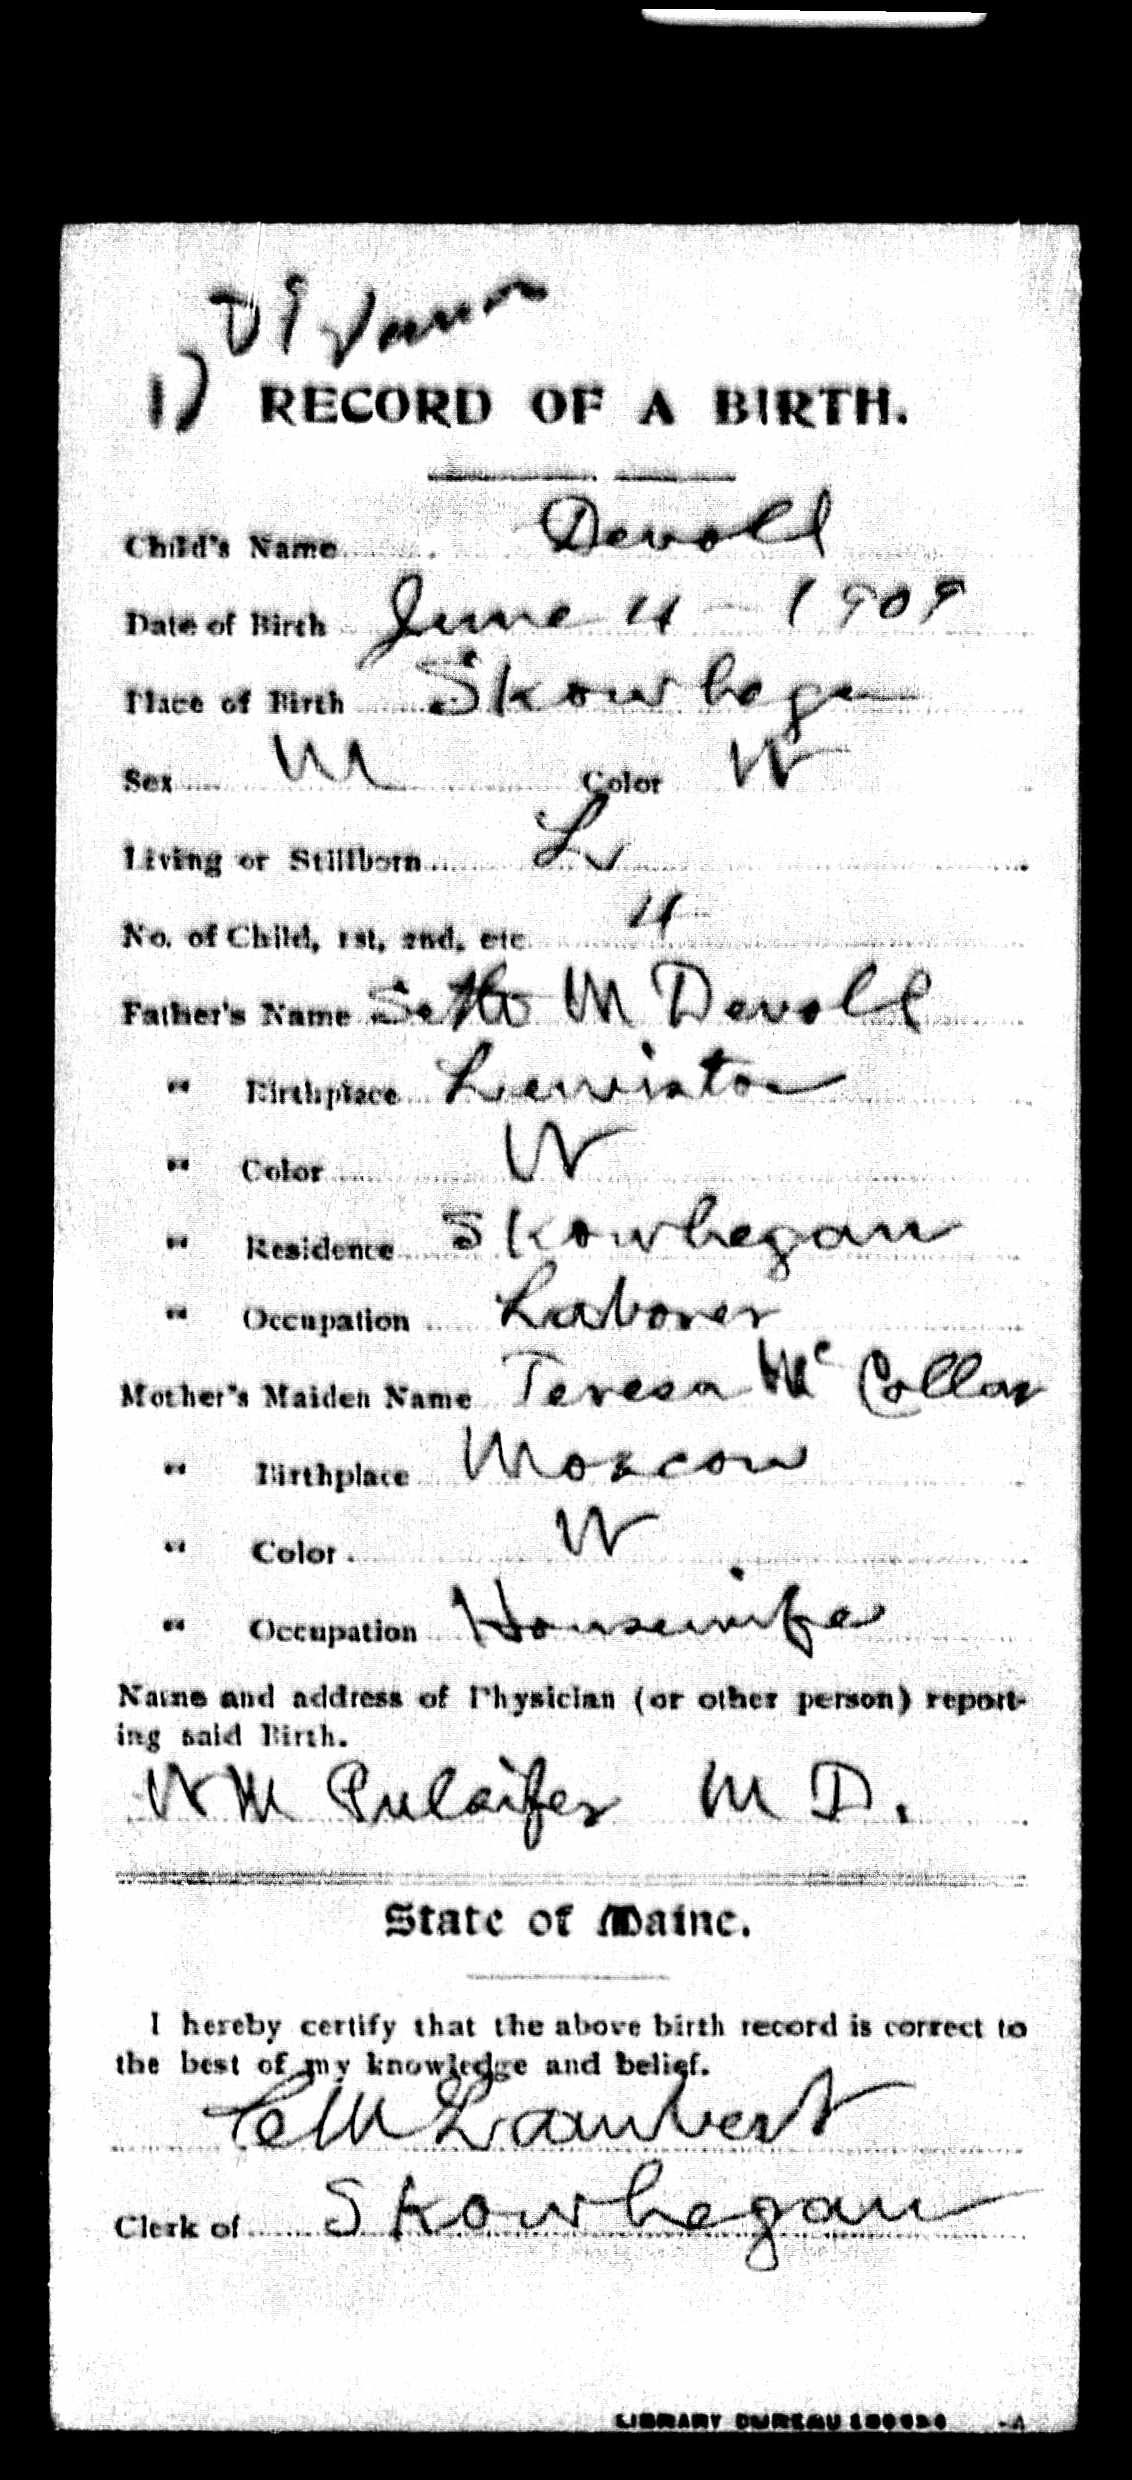 1) RECORD OF A BIRTH.
Child's Name Devoll
Date of Birth June 4 - 1909
Place of Birth Skowhegan
Sex M Color W
Living or Stillborn L
No. of Child, 1st, 2nd, etc. 4
Father's Name Seth M Devoll
" Birthplace Lewiston
" Color W
" Residence Skowhegan
" Occupation Laborer
Mother's Maiden Name Teresa Mc Collar
" Birthplace Moscow
" Color W
" Occupation Housewife
Name and address of Physician (or other person) report-
ing said Birth.
W M Pulsifer M D.
State of Maine.
I hereby certify that the above birth record is correct to
the best of my knowledge and belief.
C M Lambert
Clerk of Skowhegan
LIBRARY BUREAU